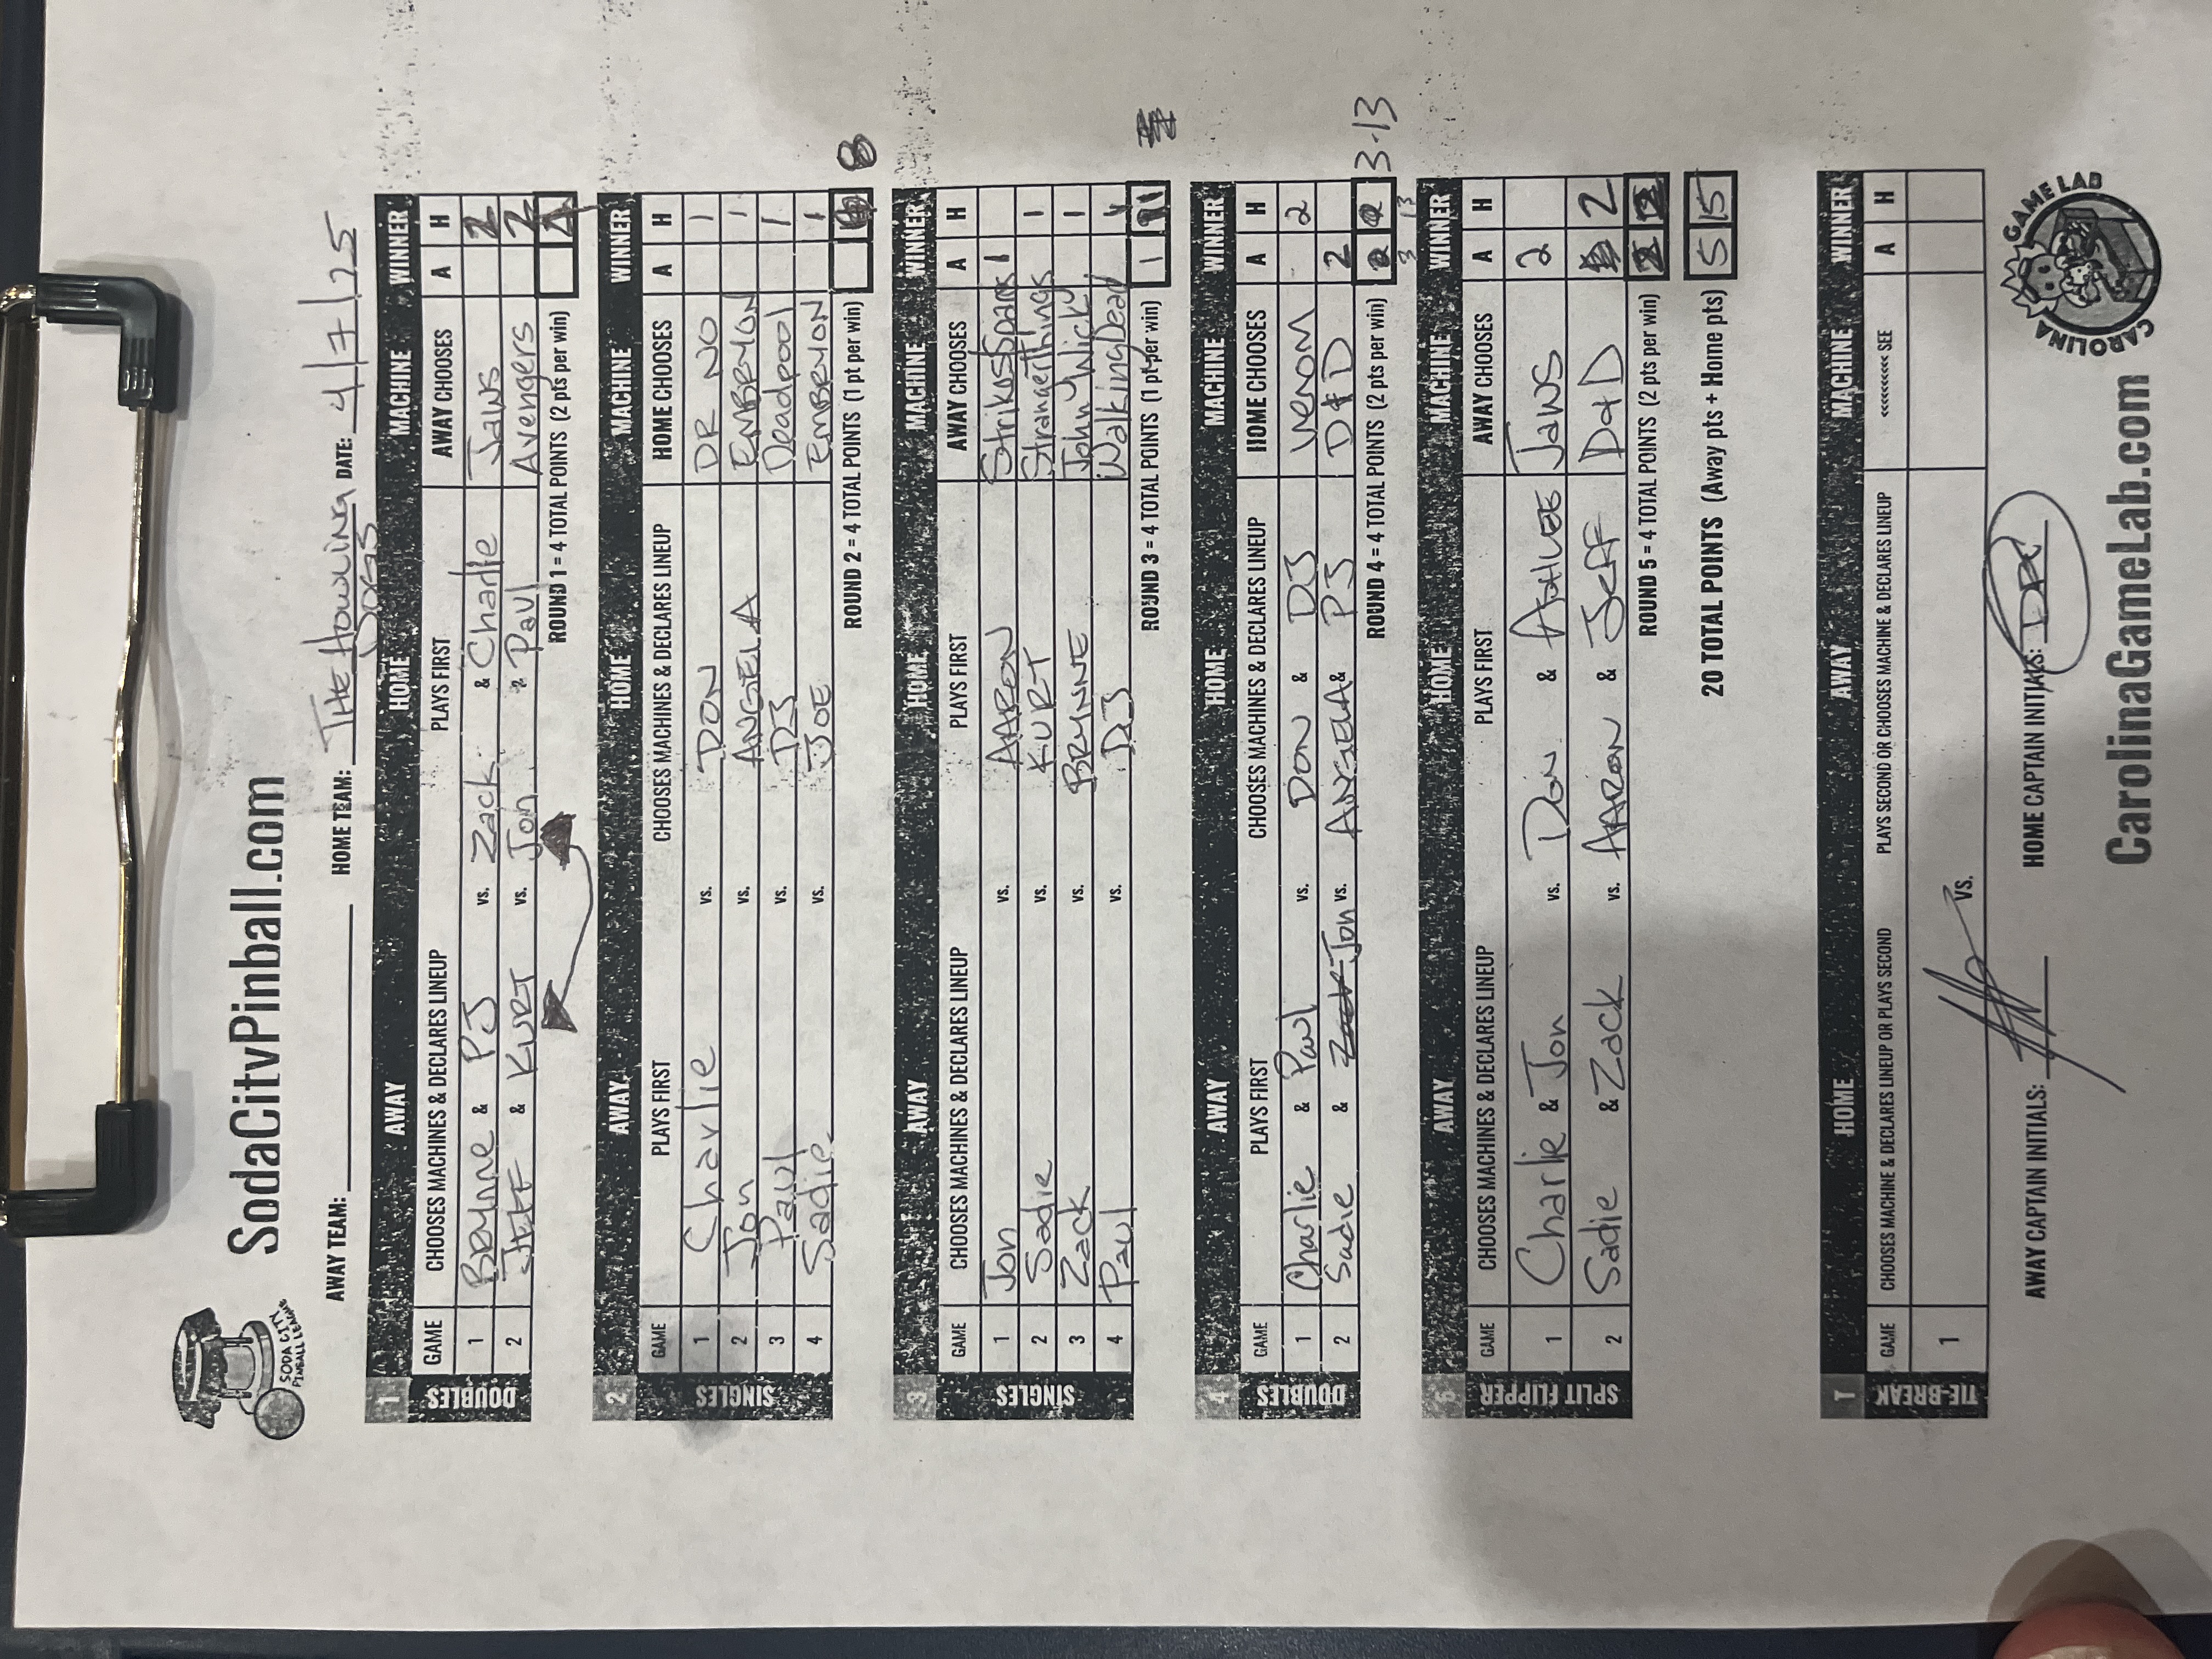 SodaCityPinball.com
SODA CITY PINBALL LEAGUE
AWAY TEAM: HOME TEAM: THE HOWLING DOGS DATE: 4/7/25
1 AWAY HOME MACHINE WINNER
GAME CHOOSES MACHINES & DECLARES LINEUP PLAYS FIRST AWAY CHOOSES A H
DOUBLES
1 BRYNNE & PJ vs. Zack & Charlie Jaws 2
2 JEFF & KURT vs. Jon & Paul Avengers 2
ROUND 1 = 4 TOTAL POINTS (2 pts per win) 4
2 AWAY HOME MACHINE WINNER
GAME PLAYS FIRST CHOOSES MACHINES & DECLARES LINEUP HOME CHOOSES A H
SINGLES
1 Charlie vs. DON DR NO 1
2 Jon vs. ANGELA EMBRYON 1
3 Paul vs. DJ Deadpool 1
4 Sadie vs. JOE EMBRYON 1
ROUND 2 = 4 TOTAL POINTS (1 pt per win) 8
3 AWAY HOME MACHINE WINNER
GAME CHOOSES MACHINES & DECLARES LINEUP PLAYS FIRST AWAY CHOOSES A H
SINGLES
1 Jon vs. AARON Strikes/Spares 1
2 Sadie vs. KURT StrangerThings 1
3 Zack vs. BRYNNE John Wick 1
4 Paul vs. DJ WalkingDead 1
ROUND 3 = 4 TOTAL POINTS (1 pt per win) 1 11
4 AWAY HOME MACHINE WINNER
GAME PLAYS FIRST CHOOSES MACHINES & DECLARES LINEUP HOME CHOOSES A H
DOUBLES
1 Charlie & Paul vs. DON & DJ VENOM 2
2 Sadie & Zack Jon vs. ANGELA & PJ D&D 2
ROUND 4 = 4 TOTAL POINTS (2 pts per win) 2 2 3-13
3 13
5 AWAY HOME MACHINE WINNER
GAME CHOOSES MACHINES & DECLARES LINEUP PLAYS FIRST AWAY CHOOSES A H
SPLIT FLIPPER
1 Charlie & Jon vs. Don & ASHLEE JAWS 2
2 Sadie & Zack vs. AARON & JEFF D&D 2
ROUND 5 = 4 TOTAL POINTS (2 pts per win) 2 2
20 TOTAL POINTS (Away pts + Home pts) 5 15
T HOME AWAY MACHINE WINNER
GAME CHOOSES MACHINE & DECLARES LINEUP OR PLAYS SECOND PLAYS SECOND OR CHOOSES MACHINE & DECLARES LINEUP <<<<<<<<< SEE A H
TIE-BREAK
1 vs.
AWAY CAPTAIN INITIALS: HOME CAPTAIN INITIALS:
CAROLINA GAME LAB
CarolinaGameLab.com